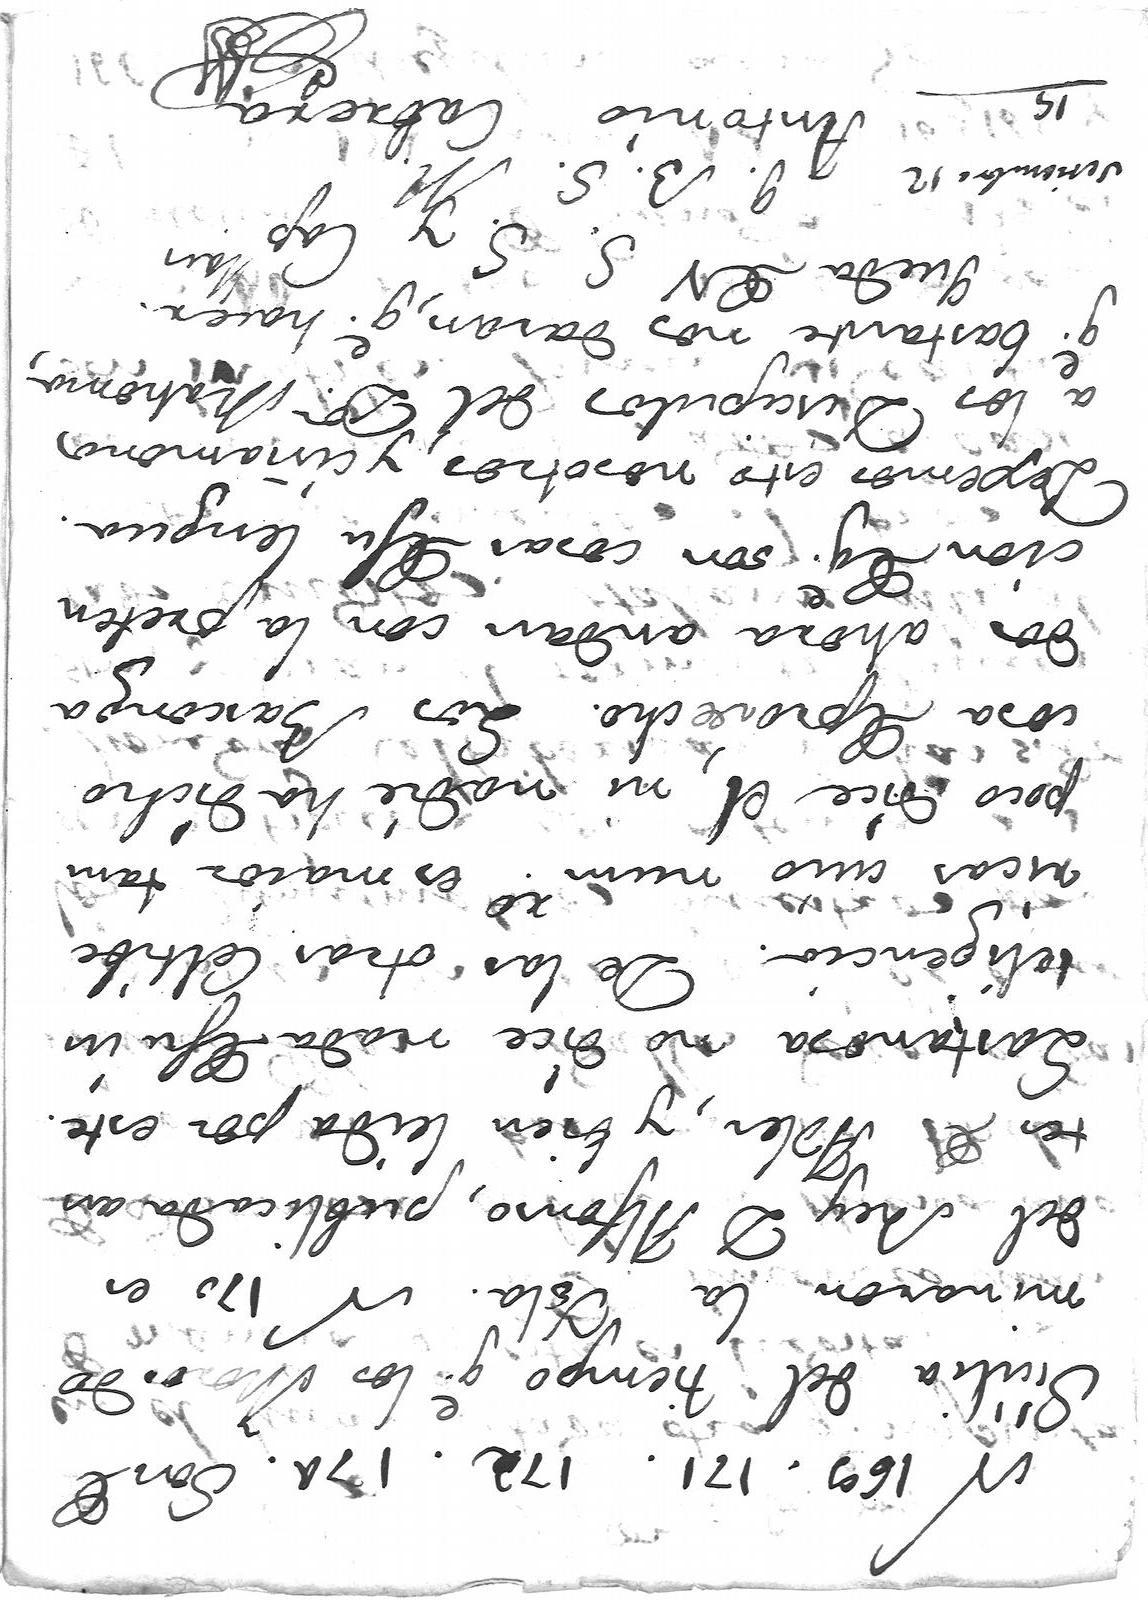 N 169. 171. 172. 174. Son de
Sicilia del tiempo q.e los Moros do
minaron la Isla. N 170 es
del Rey D Alfonso, publicada an
tes de Adler, y bien leida por este.
Lastanosa no dice nada de su in
teligencia. De las otras Celtibe
ricas cuio num.ro es maior tam
poco dice el, ni nadie ha dicho
cosa de provecho. Los Basconga
dos ahora andan con la preten
cion de q.e son cosas de su lengua.
Dexemos esto nosotros, y ciñamonos
a los Discipulos del D.or Mahoma,
q.e bastante nos daran, q.e hacer.
Queda de V S S. y Cap
Setiembre 12 Q. B. S. M.
15 Antonio Cabrera